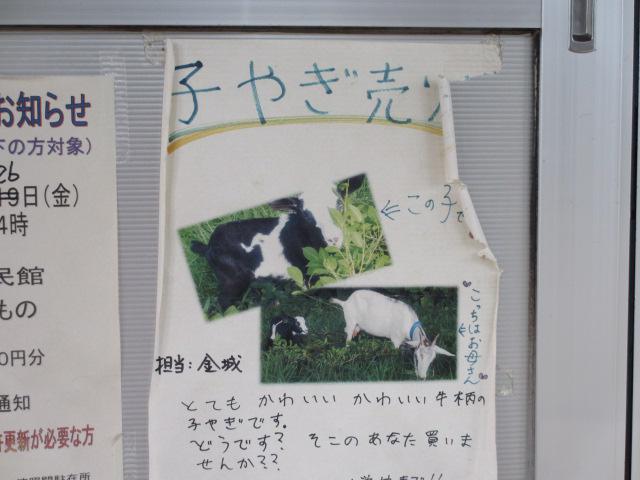 お知らせ
下の方対象)
26
19日(金)
4時
民館
もの
0円分
通知
許更新が必要な方
子やぎ売
⇐この子
♥こっちはお母さん♥
担当:金城
とても かわいい かわいい 牛柄の
子やぎです。
どうです? そこの あなた 買いま
せんか??